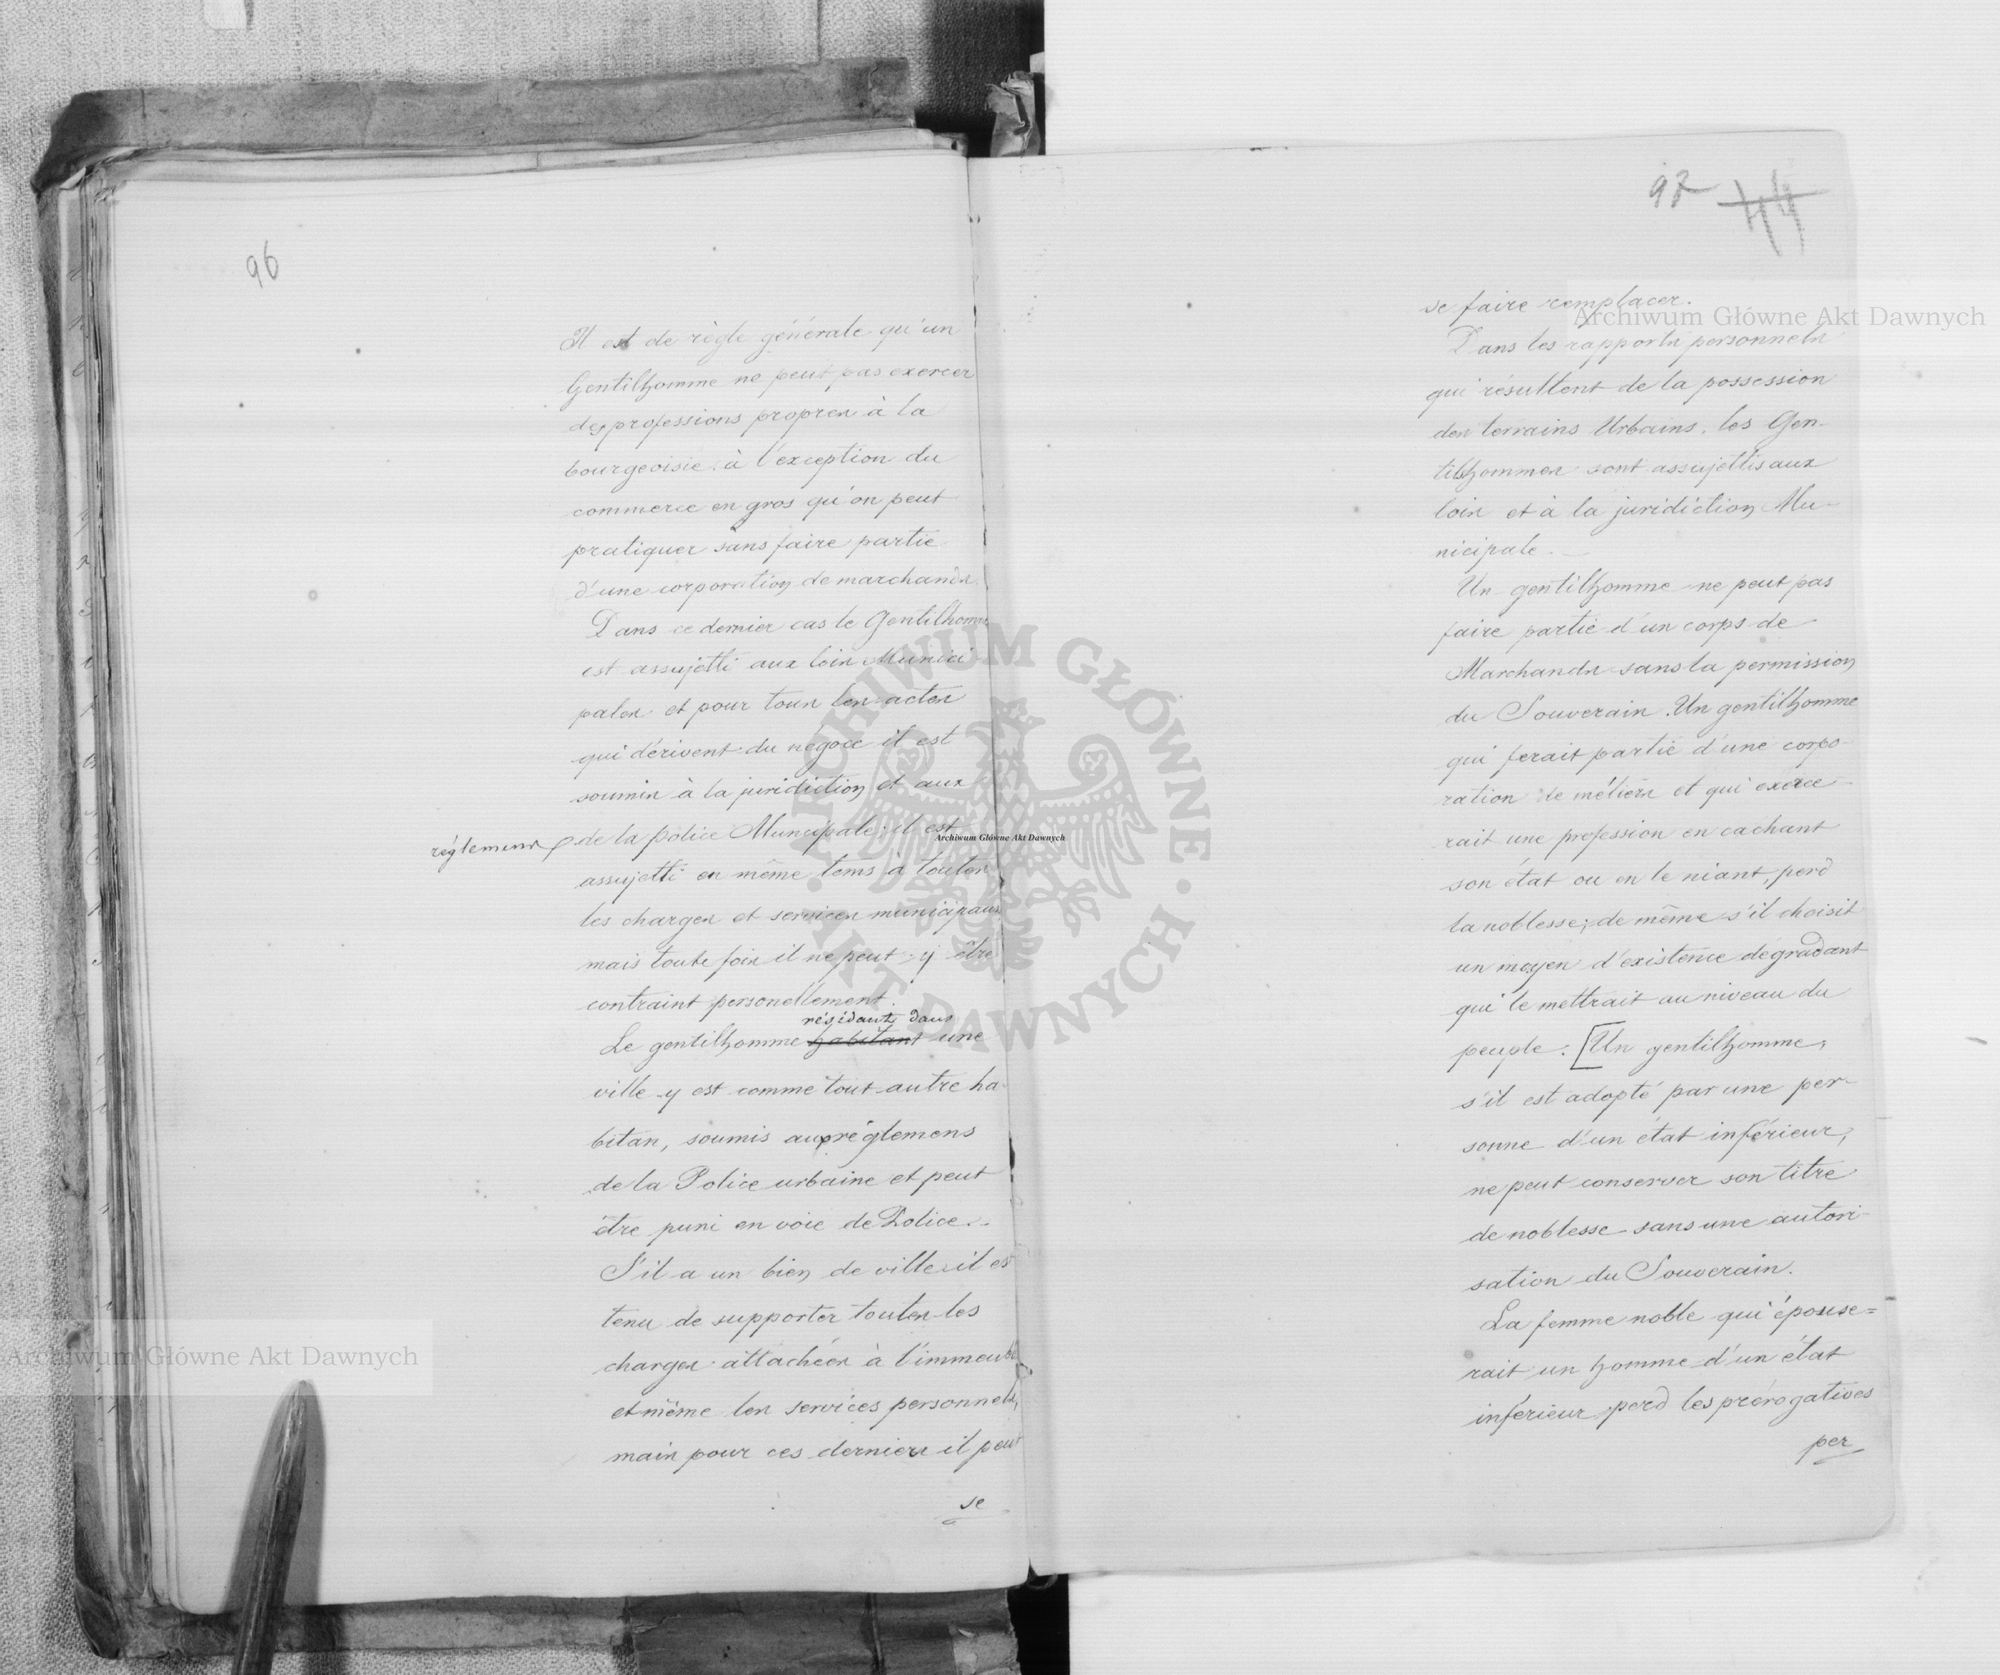 96
Il est de règle générale qu'un
Gentilhomme ne peut pas exercer
des professions propres à la
bourgeoisie à l'exception du
commerce en gros qu'on peut
pratiquer sans faire partie
d'une corporation de marchands.
Dans ce dernier cas le Gentilhomme
est assujetti aux loix Munici
pales et pour tous les actes
qui dérivent du négoce il est
soumis à la juridiction et aux
réglemens de la police Municipale; il est
assujetti en même tems à toutes
les charges et services municipaux
mais toute fois il ne peut y être
contraint personellement.
résidant dans
Le gentilhomme habitant une
ville y est comme tout autre ha-
bitan, soumis aux réglemens
de la Police urbaine et peut
être puni en voie de Police.
S'il a un bien de ville il est
tenu de supporter toutes les
charges attachées à l'immeuble
et même les services personnels,
mais pour ces derniers il peut
se
97 44
se faire remplacer.
Dans les rapports personnels
qui résultent de la possession
des terrains Urbains, les Gen-
tilshommes sont assujettis aux
loix et à la juridiction Mu-
nicipale.
Un gentilhomme ne peut pas
faire partie d'un corps de
Marchands sans la permission
du Souverain. Un gentilhomme
qui ferait partie d'une corpo-
ration de métiers et qui exerce-
rait une profession en cachant
son état ou en le niant, perd
la noblesse; de même s'il choisit
un moyen d'existence dégradant
qui le mettrait au niveau du
peuple. [Un gentilhomme,
s'il est adopté par une per-
sonne d'un état inférieur,
ne peut conserver son titre
de noblesse sans une autori-
sation du Souverain.
La femme noble qui épouse=
rait un homme d'un état
inférieur perd les prérogatives
per
Archiwum Główne Akt Dawnych
Archiwum Główne Akt Dawnych
Archiwum Główne Akt Dawnych
ARCHIWUM GŁÓWNE · AKT DAWNYCH ·